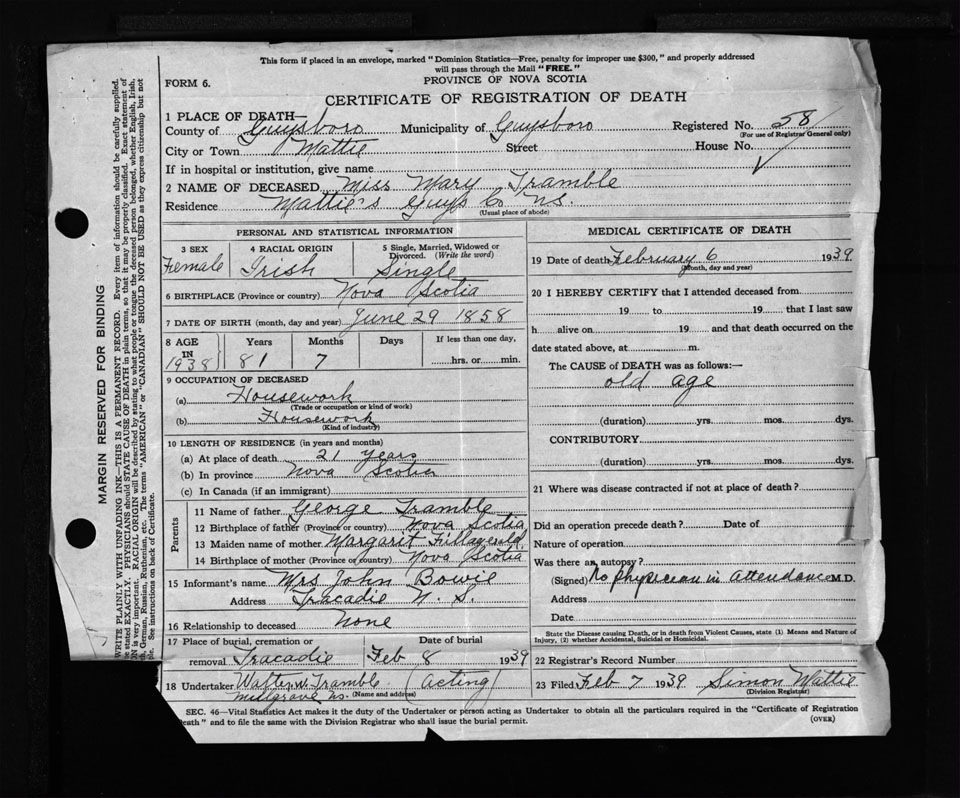 This form if placed in an envelope, marked "Dominion Statistics—Free, penalty for improper use $300," and properly addressed
will pass through the Mail "FREE."
PROVINCE OF NOVA SCOTIA
FORM 6.
CERTIFICATE OF REGISTRATION OF DEATH
1 PLACE OF DEATH—
County of Guysboro Municipality of Guysboro Registered No. 58
(For use of Registrar General only)
City or Town Mattie Street House No.
If in hospital or institution, give name
2 NAME OF DECEASED Miss Mary Tramble
Residence Mattie's Guys Co NS.
(Usual place of abode)
PERSONAL AND STATISTICAL INFORMATION
3 SEX 4 RACIAL ORIGIN 5 Single, Married, Widowed or
Divorced. (Write the word)
Female Irish Single
6 BIRTHPLACE (Province or country) Nova Scotia
7 DATE OF BIRTH (month, day and year) June 29 1858
8 AGE Years Months Days If less than one day,
IN
1938 81 7 hrs. or min.
9 OCCUPATION OF DECEASED
(a) Housework
(Trade or occupation or kind of work)
(b) Housework
(Kind of industry)
10 LENGTH OF RESIDENCE (in years and months)
(a) At place of death 21 years
(b) In province Nova Scotia
(c) In Canada (if an immigrant)
Parents
11 Name of father George Tramble
12 Birthplace of father (Province or country) Nova Scotia
13 Maiden name of mother Margaret
14 Birthplace of mother (Province or country) Nova Scotia
15 Informant's name Mrs John Bowie
Address Tracadie N. S.
16 Relationship to deceased None
17 Place of burial, cremation or Date of burial
removal Tracadie Feb 8 1939
18 Undertaker Walter W. Tramble (Acting)
Mulgrave NS. (Name and address)
MEDICAL CERTIFICATE OF DEATH
19 Date of death February 6 1939
(Month, day and year)
20 I HEREBY CERTIFY that I attended deceased from
19 to 19 that I last saw
h alive on 19 and that death occurred on the
date stated above, at m.
The CAUSE of DEATH was as follows:—
old age
(duration) yrs. mos. dys.
CONTRIBUTORY
(duration) yrs. mos. dys.
21 Where was disease contracted if not at place of death?
Did an operation precede death? Date of
Nature of operation
Was there an autopsy?
(Signed) No physician in Attendance M.D.
Address
Date
State the Disease causing Death, or in death from Violent Causes, state (1) Means and Nature of
Injury, (2) whether Accidental, Suicidal or Homicidal.
22 Registrar's Record Number
23 Filed Feb 7 1939 Simon Mattie
(Division Registrar)
SEC. 46—Vital Statistics Act makes it the duty of the Undertaker or person acting as Undertaker to obtain all the particulars required in the "Certificate of Registration
Death" and to file the same with the Division Registrar who shall issue the burial permit. (OVER)
MARGIN RESERVED FOR BINDING
WRITE PLAINLY, WITH UNFADING INK—THIS IS A PERMANENT RECORD. Every item of information should be carefully supplied.
be stated EXACTLY. PHYSICIANS should STATE CAUSE OF DEATH in plain terms, so that it may be properly classified. Exact statement of
ON is very important. RACIAL ORIGIN will be described by stating to what people or tongue the deceased person belonged, whether English, Irish,
German, Russian, Ruthenian, etc. The terms "AMERICAN" or "CANADIAN" SHOULD NOT BE USED as they express citizenship but not
See instructions on back of Certificate.